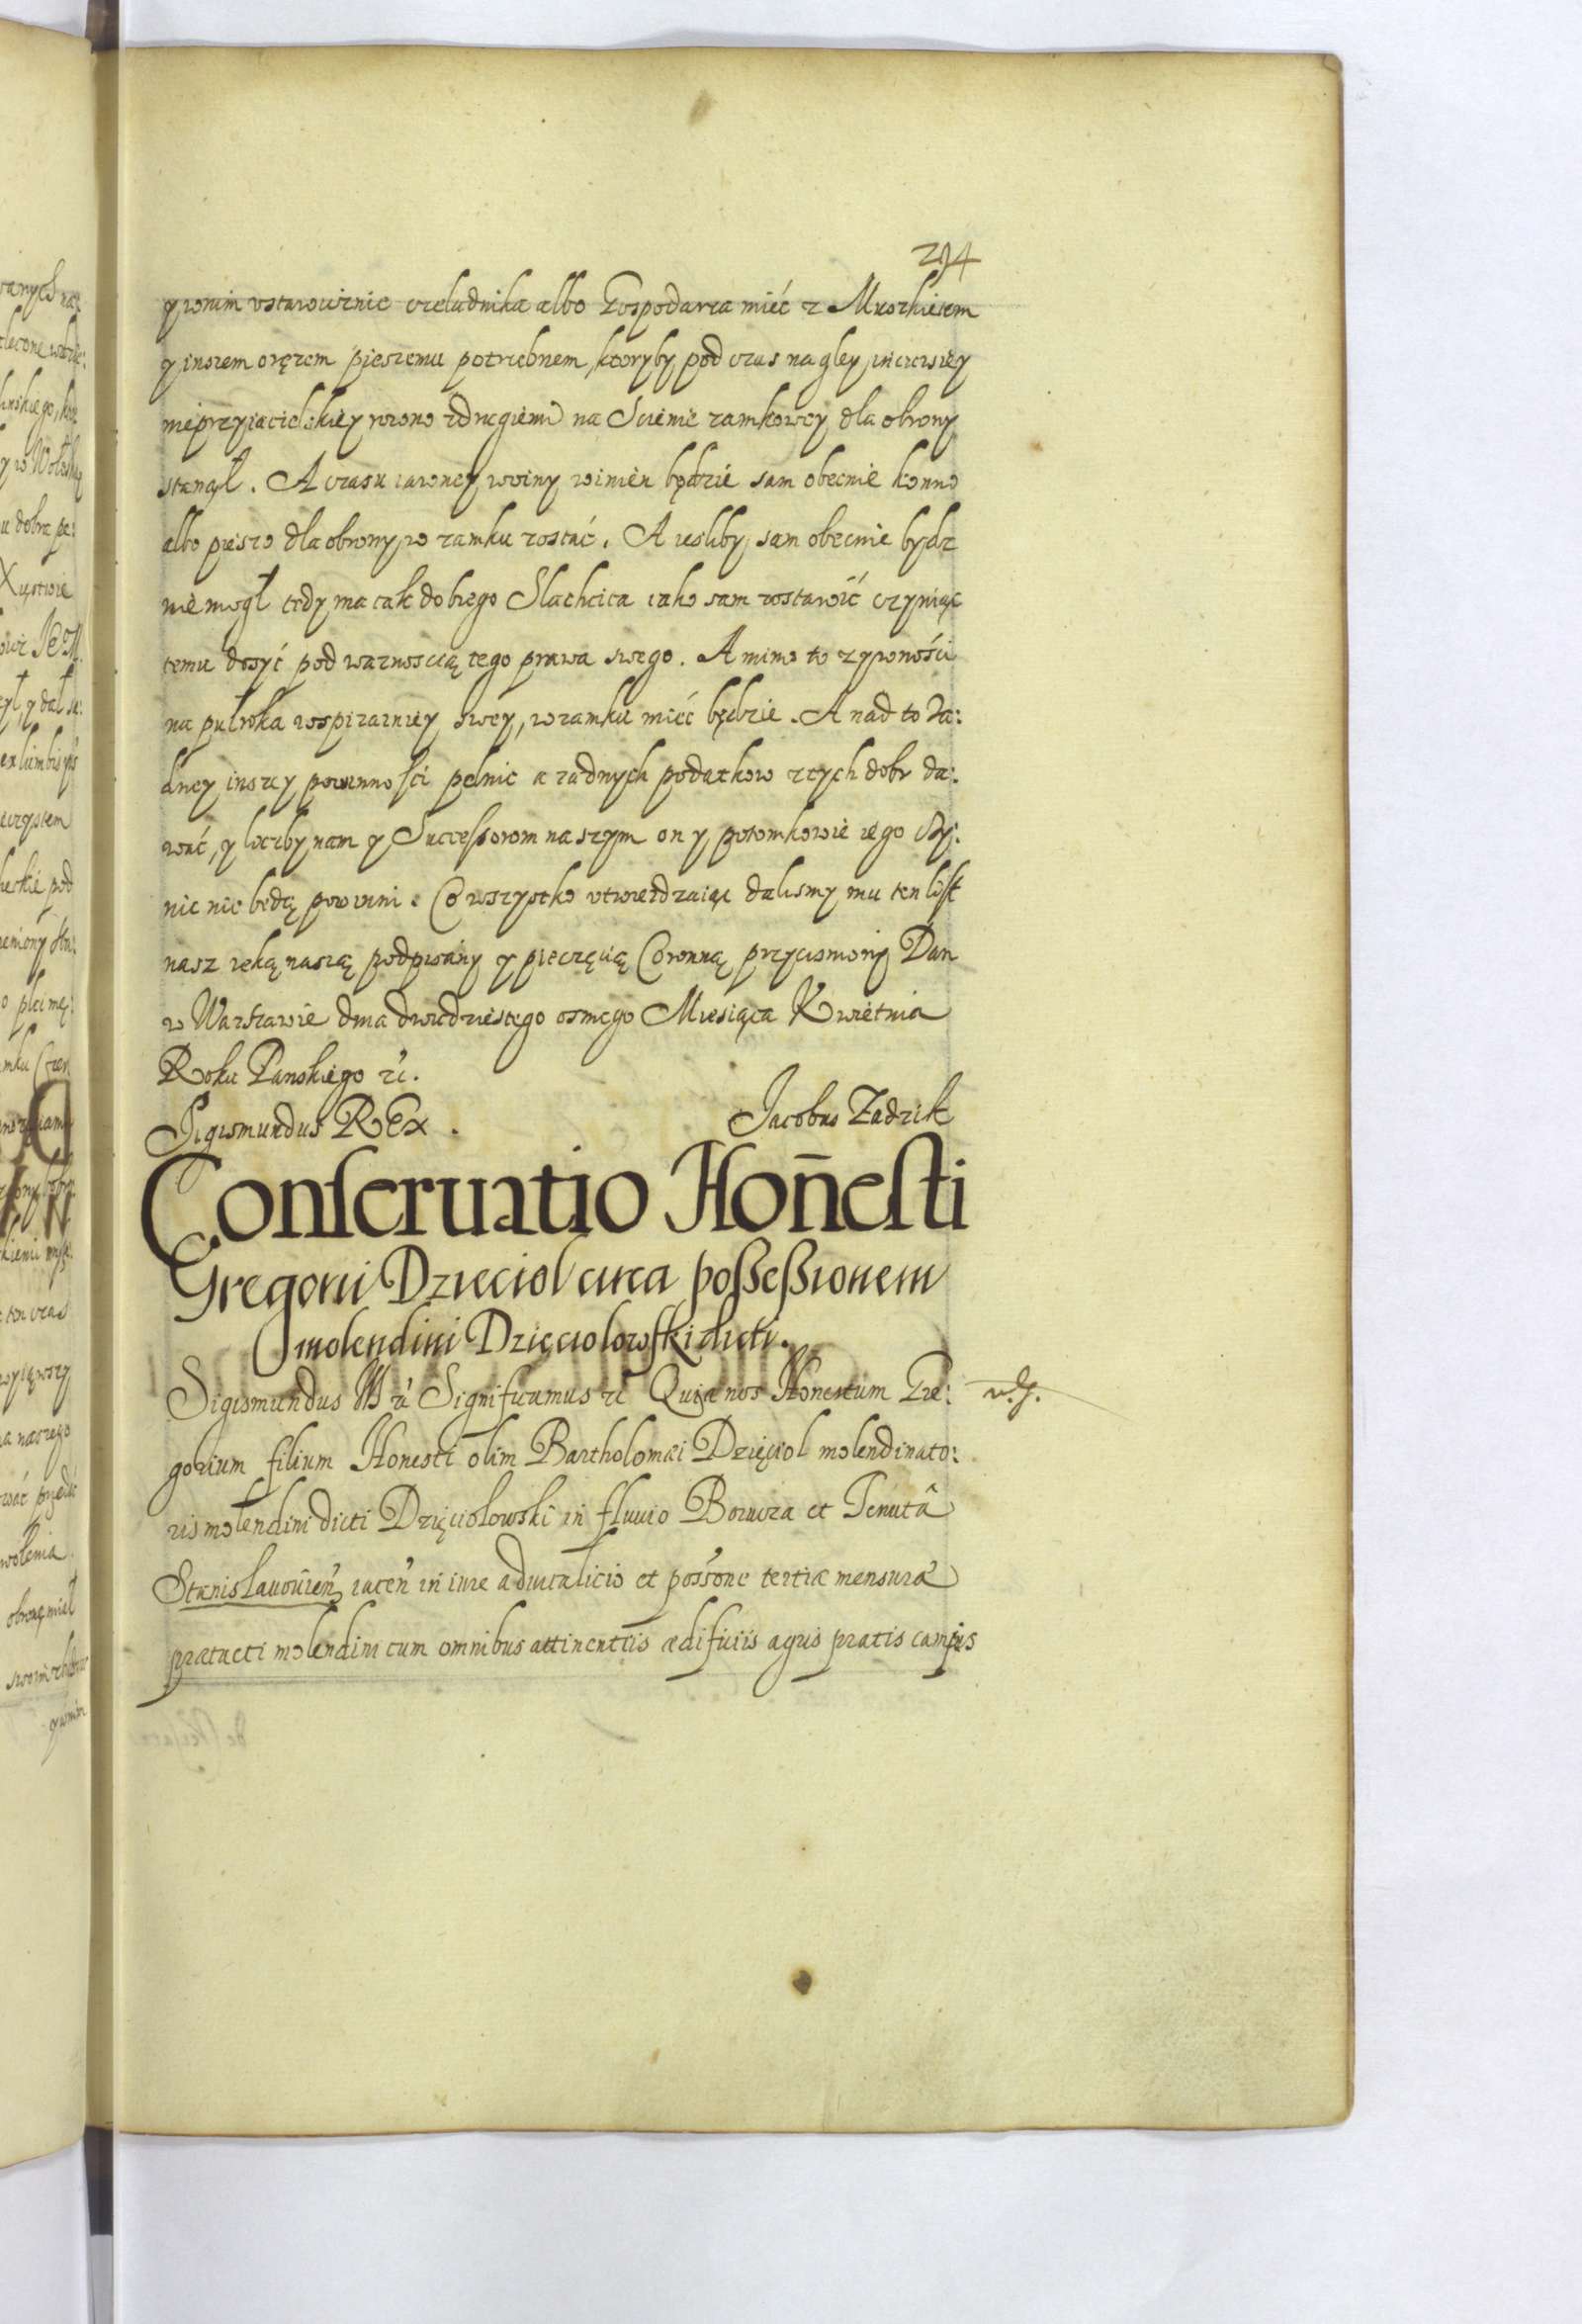 294
y wnim ustawicznie czeladnika albo Gospodarza mieć z Muszkietem
y inszem orężem pieszemu potrzebnem, ktoryby pod czas nagley incursiey
nieprzyiacielskiey rowno zdrugiemi na Scienie zamkowey dla obrony
stanął. A czasu iawney woiny winien będzie sam obecnie konno
albo pieszo dla obrony w zamku zostać. A iesliby sam obecnie bydz
nie mogł tedy ma tak dobrego Slachcica iako sam zostawić czyniąc
temu dosyć pod warnoscią tego prawa swego. A mimo to zywności
na pułroka wspizarniey swey, w zamku mieć będzie. A nad to ża:
dney inszey powinności pełnic a zadnych podatkow z tych dobr da:
wać, y liczby nam y Successorom naszym on y potomkowie iego czy:
nic nie będą powinni. Co wszystko utwierdzaiąc dalismy mu ten list
nasz ręką naszą podpisany y pieczęcią Coronną przycisniony Dan
w Warszawie dnia dwudziestego osmego Miesiąca Kwietnia
Roku Panskiego rc.
Sigismundus REx.
Jacobus Zadzik
Conseruatio Hon̄esti
Gregorii Dzieciol circa possessionem
molendini Dzięciolowski dicti.
Sigismundus III rc Significamus rc Quia nos Honestum Gre:
gorium filium Honesti olim Bartholomæi Dzięciol molendinato:
ris molendini dicti Dzięciolowski in fluvio Borucza et Tenutâ
Stanislauouien̄ iacen̄ in iure aduitalicio et posśone tertiæ mensuræ
prætacti molendini cum omnibus attinentiis ædificiis agris pratis campis